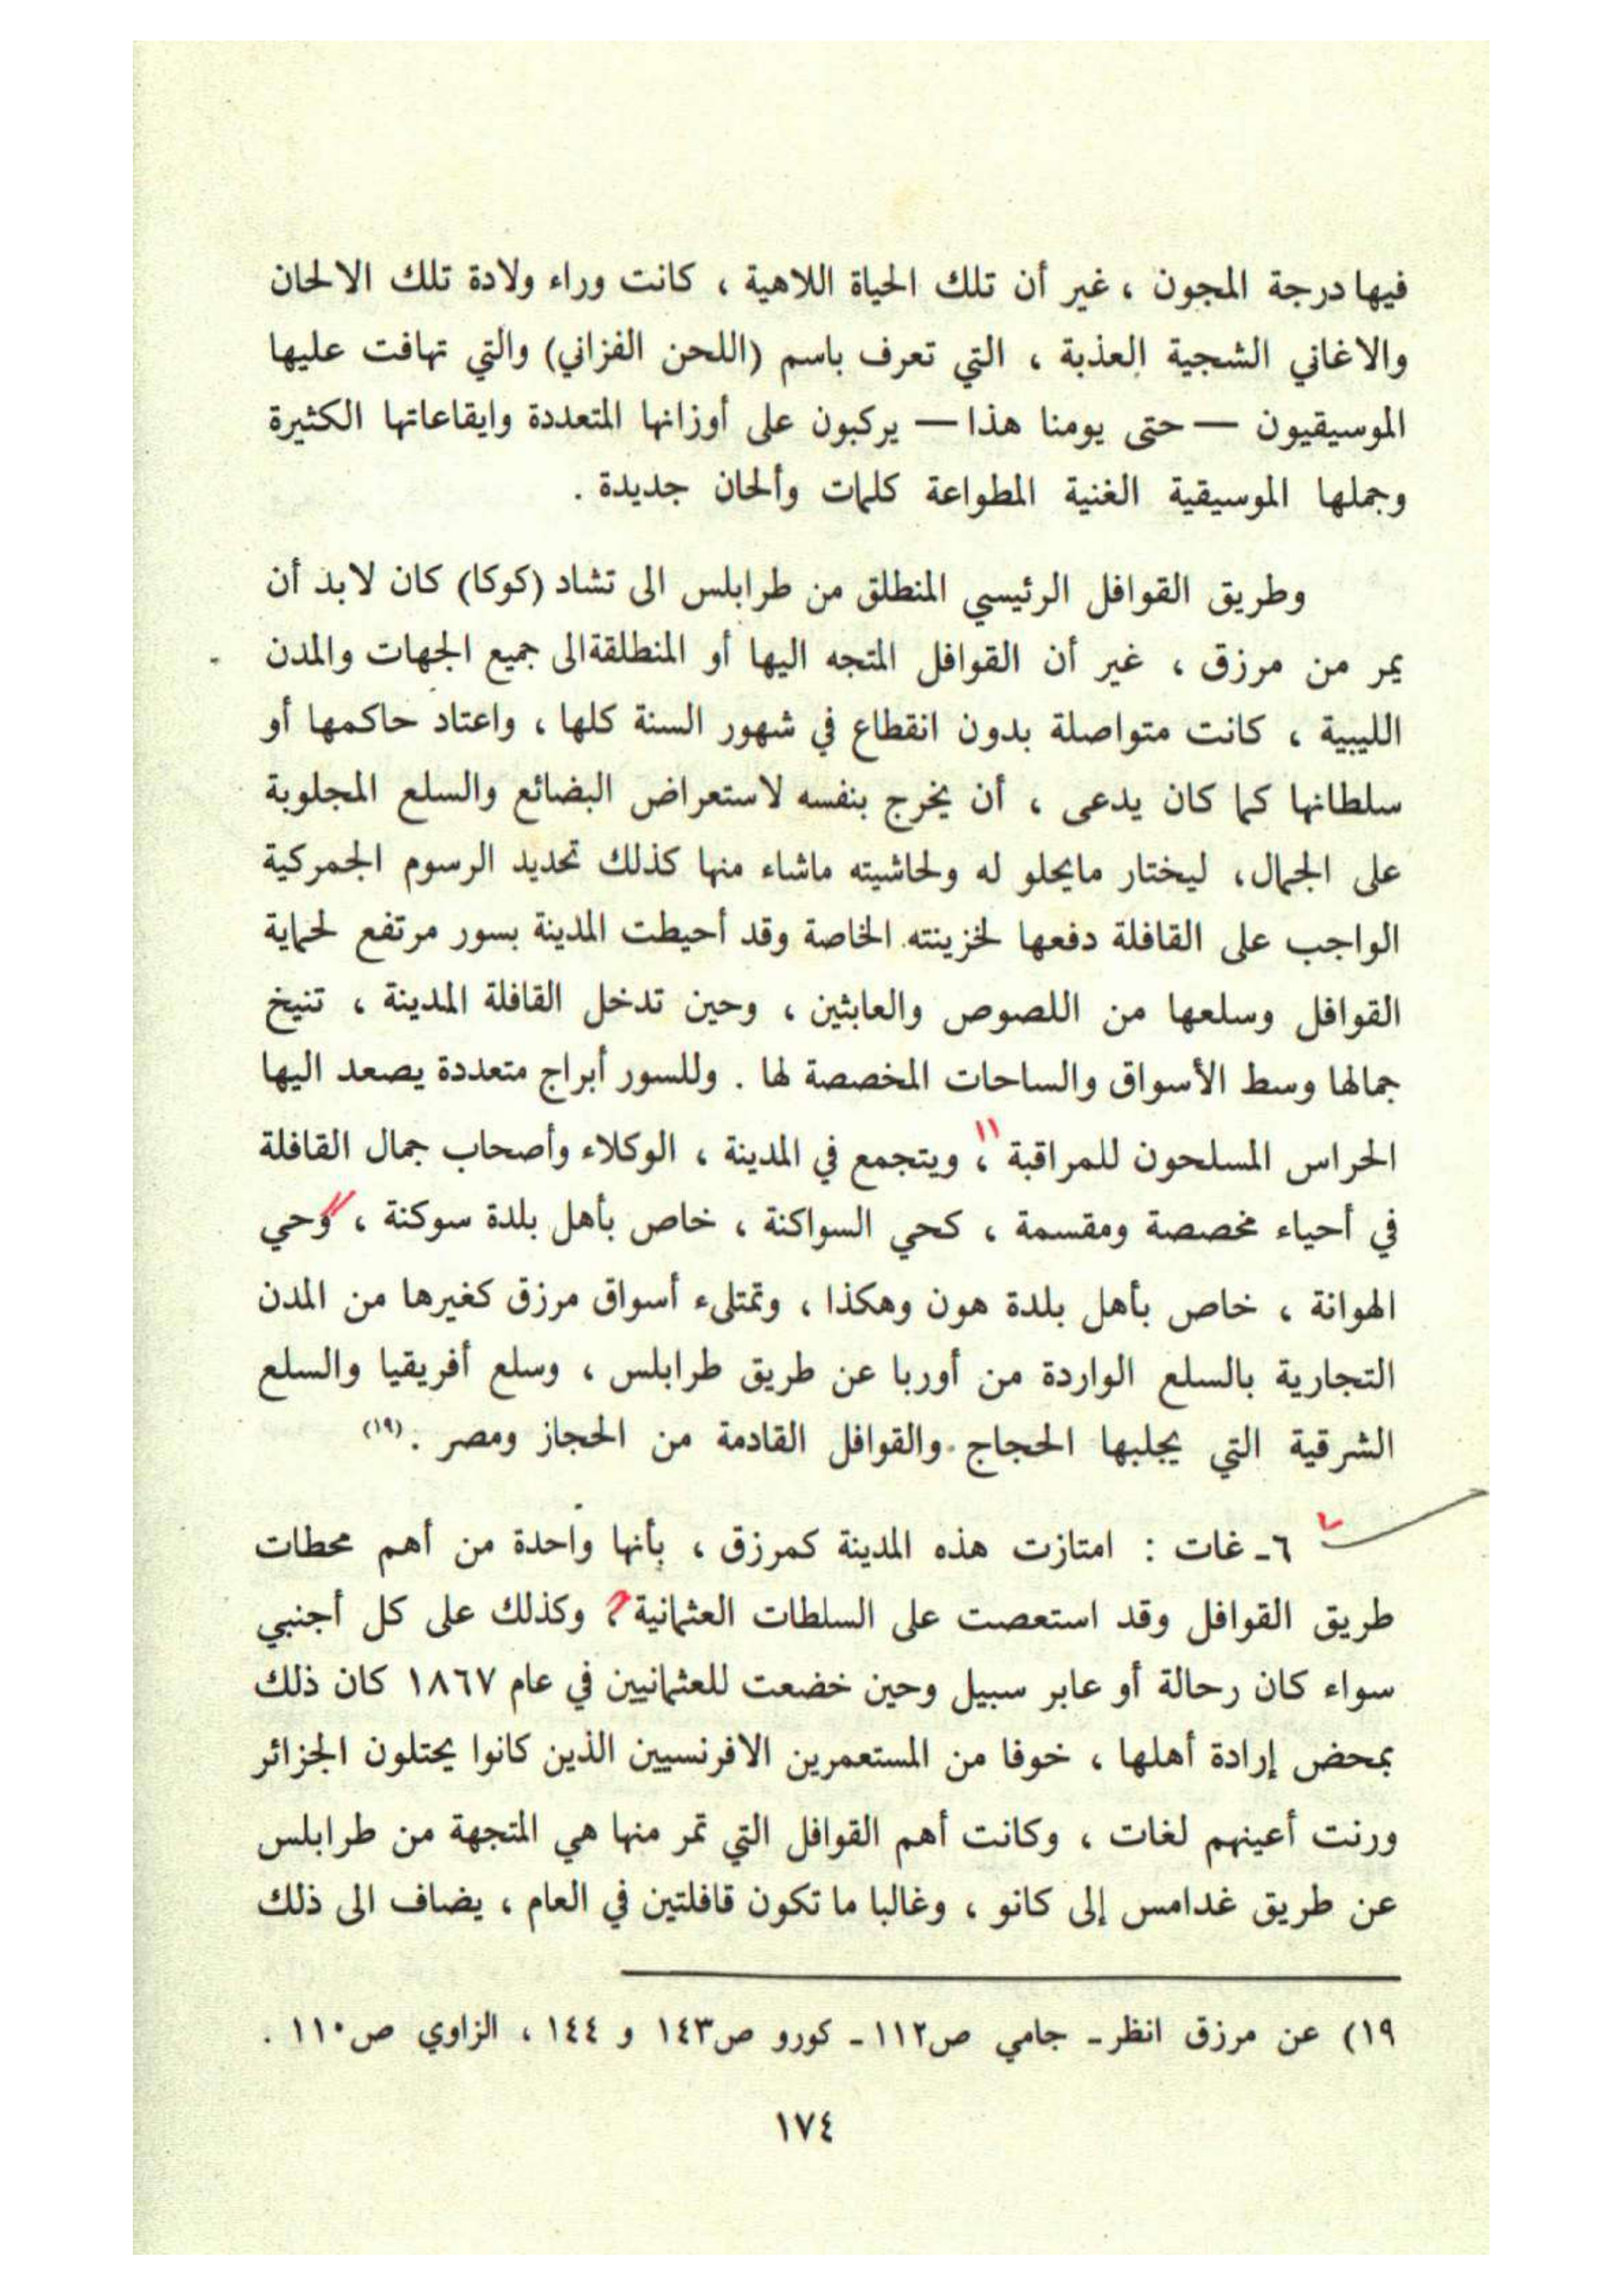 فيها درجة المجون ، غير أن تلك الحياة اللاهية ، كانت وراء ولادة تلك الالحان
والاغاني الشجية العذبة ، التي تعرف باسم (اللحن الفزاني) والتي تهافت عليها
الموسيقيون — حتى يومنا هذا — يركبون على أوزانها المتعددة وايقاعاتها الكثيرة
وجملها الموسيقية الغنية المطواعة كلمات وألحان جديدة .
وطريق القوافل الرئيسي المنطلق من طرابلس الى تشاد (كوكا) كان لابد أن
يمر من مرزق ، غير أن القوافل المتجه اليها أو المنطلقة الى جميع الجهات والمدن
الليبية ، كانت متواصلة بدون انقطاع في شهور السنة كلها ، واعتاد حاكمها أو
سلطانها كما كان يدعى ، أن يخرج بنفسه لاستعراض البضائع والسلع المجلوبة
على الجمال، ليختار مايحلو له ولحاشيته ماشاء منها كذلك تحديد الرسوم الجمركية
الواجب على القافلة دفعها لخزينته الخاصة وقد أحيطت المدينة بسور مرتفع لحماية
القوافل وسلعها من اللصوص والعابثين ، وحين تدخل القافلة المدينة ، تنيخ
جمالها وسط الأسواق والساحات المخصصة لها . وللسور أبراج متعددة يصعد اليها
الحراس المسلحون للمراقبة ، ويتجمع في المدينة ، الوكلاء وأصحاب جمال القافلة
في أحياء مخصصة ومقسمة ، كحي السواكنة ، خاص بأهل بلدة سوكنة ، وحي
الهوانة ، خاص بأهل بلدة هون وهكذا ، وتمتلىء أسواق مرزق كغيرها من المدن
التجارية بالسلع الواردة من أوربا عن طريق طرابلس ، وسلع أفريقيا والسلع
الشرقية التي يجلبها الحجاج والقوافل القادمة من الحجاز ومصر . (١٩)
٦ـ غات : امتازت هذه المدينة كمرزق ، بأنها واحدة من أهم محطات
طريق القوافل وقد استعصت على السلطات العثمانية ، وكذلك على كل أجنبي
سواء كان رحالة أو عابر سبيل وحين خضعت للعثمانيين في عام ١٨٦٧ كان ذلك
بمحض إرادة أهلها ، خوفا من المستعمرين الافرنسيين الذين كانوا يحتلون الجزائر
ورنت أعينهم لغات ، وكانت أهم القوافل التي تمر منها هي المتجهة من طرابلس
عن طريق غدامس إلى كانو ، وغالبا ما تكون قافلتين في العام ، يضاف الى ذلك
١٩) عن مرزق انظر ـ جامي ص١١٢ ـ كورو ص١٤٣ و ١٤٤ ، الزاوي ص١١٠ .
١٧٤